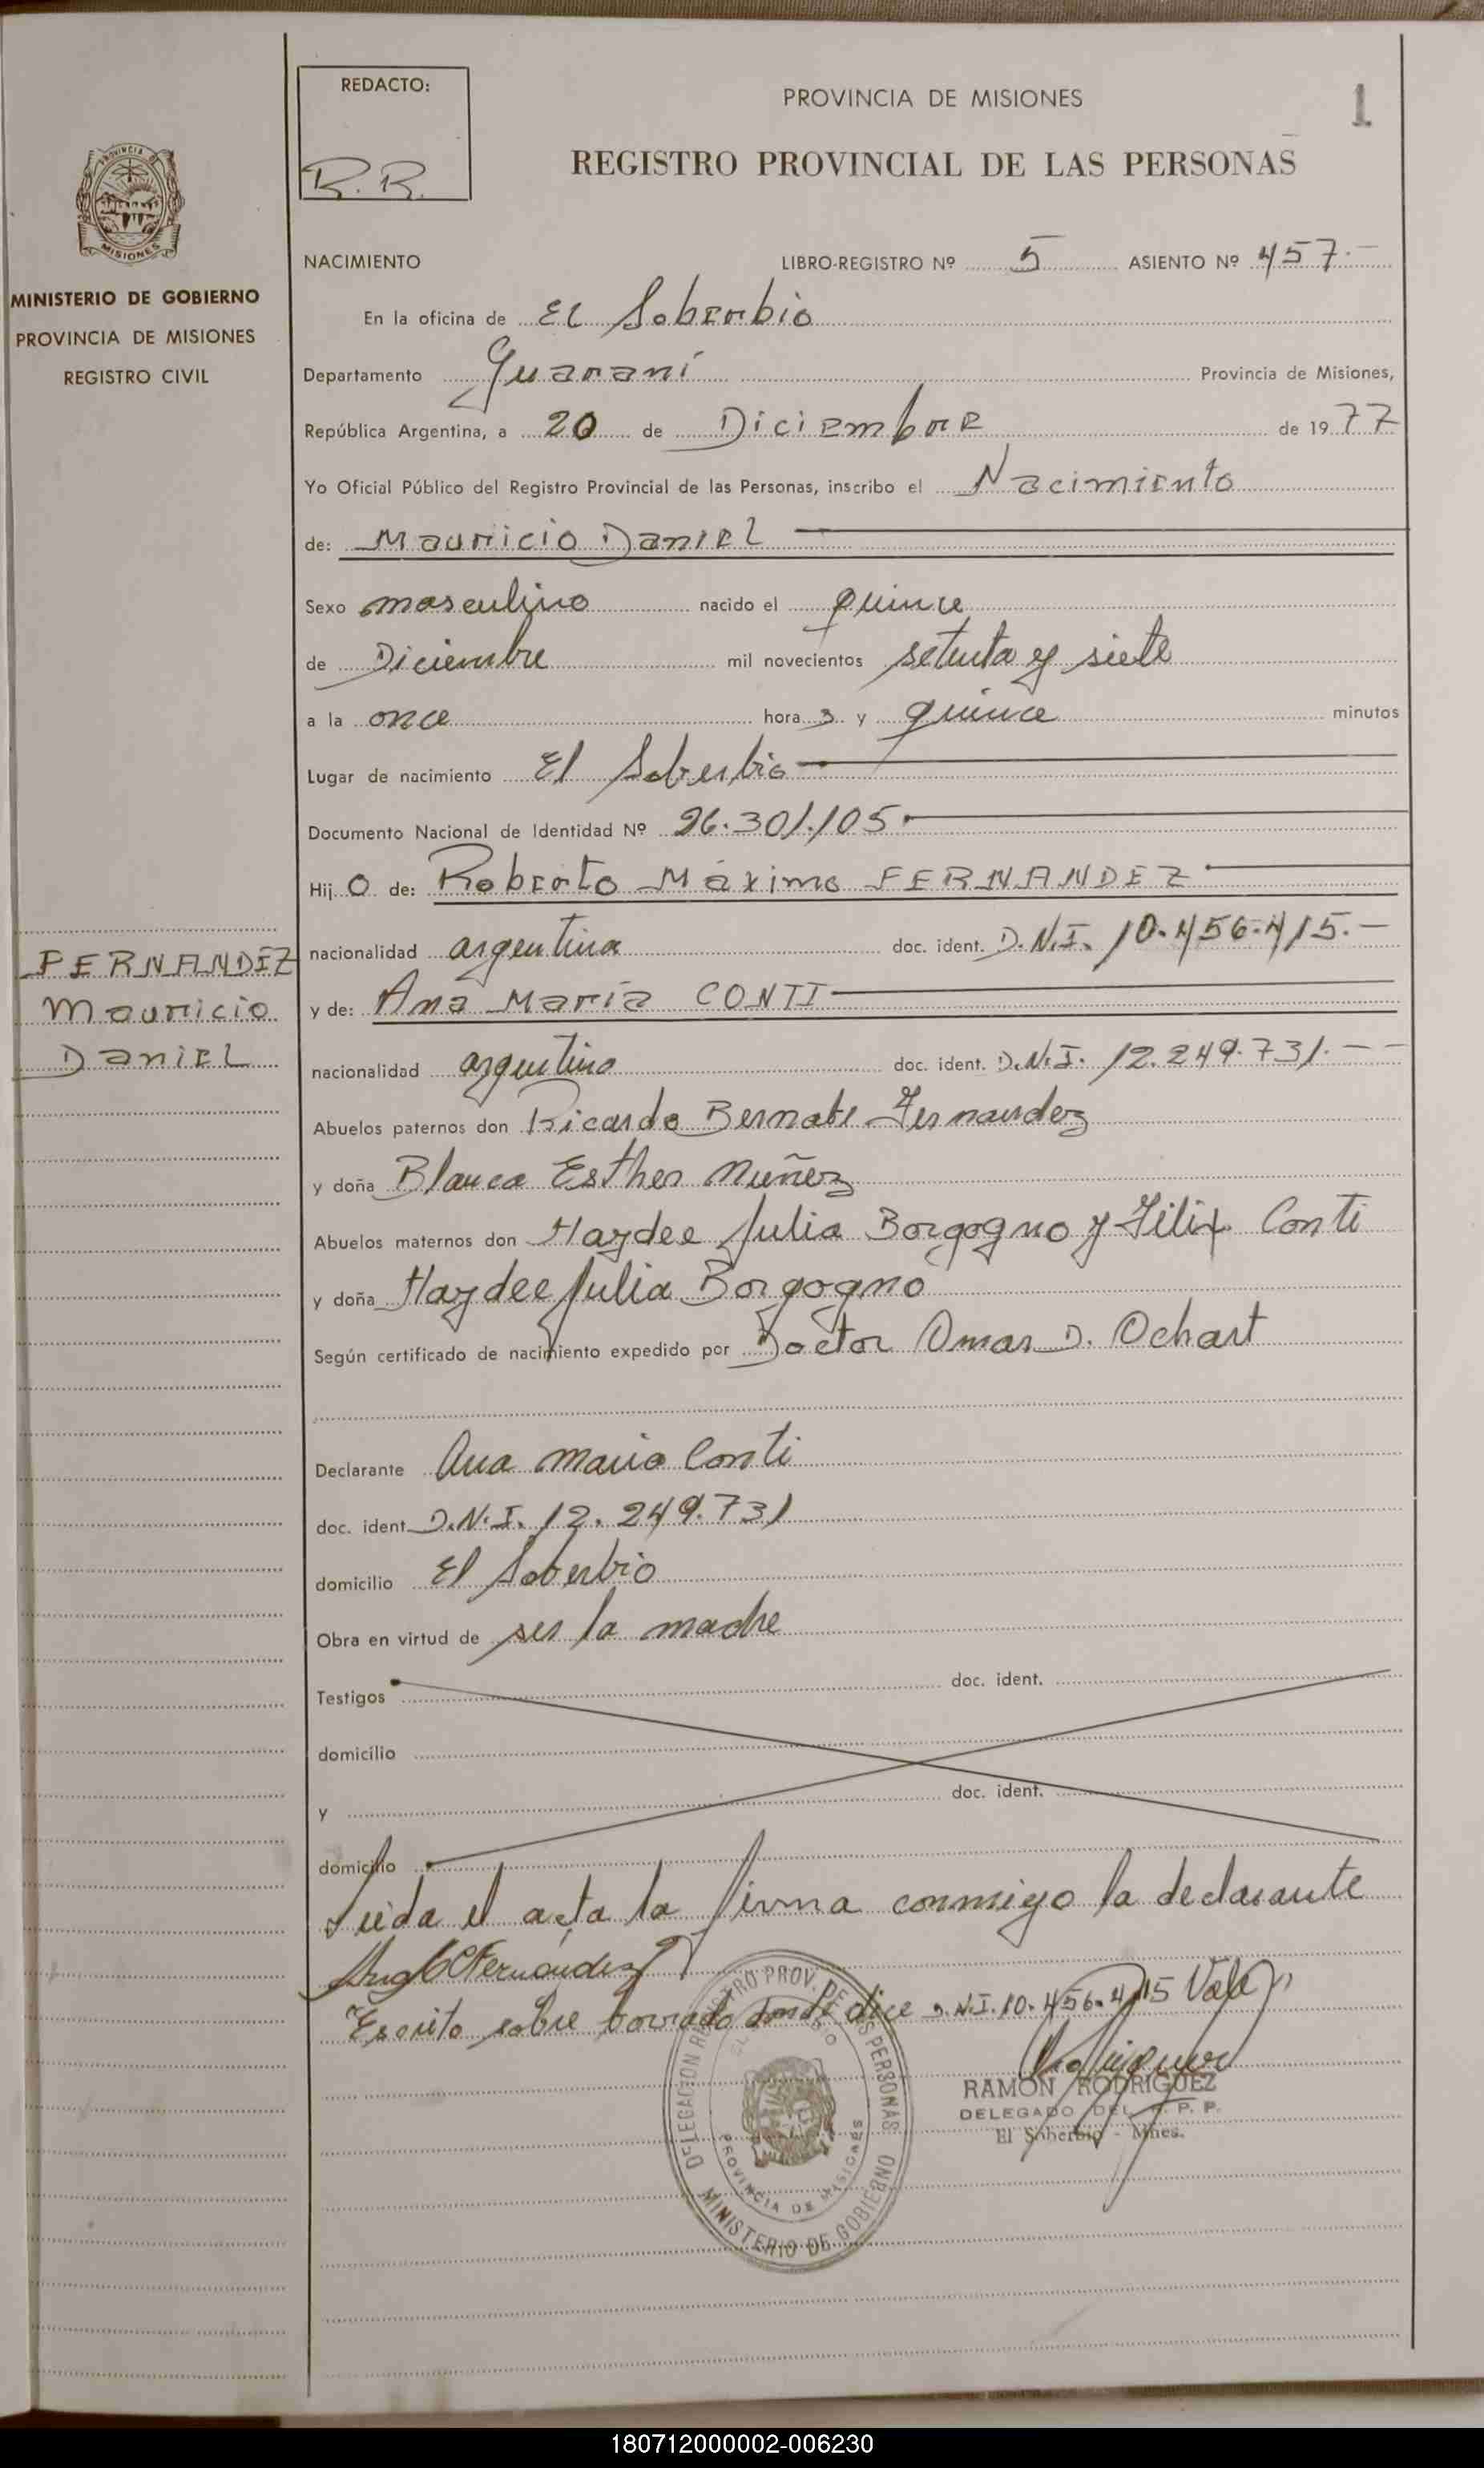 REDACTO:
R. R.
PROVINCIA DE MISIONES
1
REGISTRO PROVINCIAL DE LAS PERSONAS
PROVINCIA DE
MISIONES
MINISTERIO DE GOBIERNO
PROVINCIA DE MISIONES
REGISTRO CIVIL
NACIMIENTO LIBRO-REGISTRO Nº 5 ASIENTO Nº 457.-
En la oficina de El Soberbio
Departamento Guaraní Provincia de Misiones,
República Argentina, a 20 de Diciembre de 1977
Yo Oficial Público del Registro Provincial de las Personas, inscribo el Nacimiento
de: Mauricio Daniel
Sexo masculino nacido el quince
de Diciembre mil novecientos setenta y siete
a la once hora s y quince minutos
Lugar de nacimiento El Soberbio
Documento Nacional de Identidad Nº 26.301.105
Hij o de: Roberto Máximo FERNANDEZ
nacionalidad argentina doc. ident. D.N.I. 10.456.415.-
y de: Ana María CONTI
FERNANDEZ
Mauricio
Daniel
nacionalidad argentina doc. ident. D.N.I. 12.249.731.--
Abuelos paternos don Ricardo Bernabe Fernandez
y doña Blanca Esther Nuñez
Abuelos maternos don Haydee Julia Borgogno y Felix Conti
y doña Haydee Julia Borgogno
Según certificado de nacimiento expedido por Doctor Omar D. Ochart
Declarante Ana Maria Conti
doc. ident D.N.I. 12.249.731
domicilio El Soberbio
Obra en virtud de ser la madre
Testigos doc. ident.
domicilio
y doc. ident.
domicilio
Leida el acta la firma conmigo la declarante
Fernandez
Escrito sobre borrado donde dice D.N.I. 10.456.415 Vale
RAMON RODRIGUEZ
DELEGADO DEL R. P. P.
El Soberbio - Mnes.
DELEGACION REGISTRO PROV. DE LAS PERSONAS
EL SOBERBIO
PROVINCIA DE MISIONES
MINISTERIO DE GOBIERNO
180712000002-006230